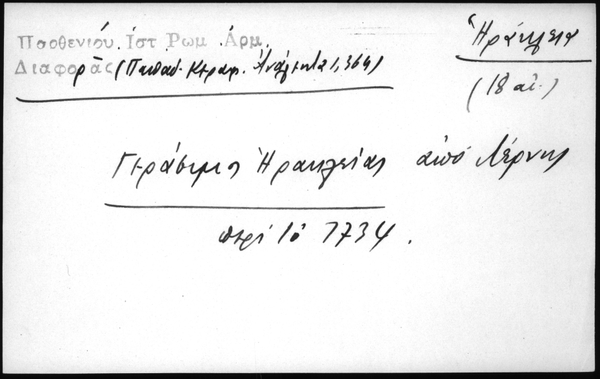 Παρθενίου. Ἱστ Ρωμ. Ἁρμ.
Διαφοράς (Παπαδ. Κεραμ. Ἀνάλεκτα 1, 364)
Ἡράκλεια
(18 αἰ.)
Γεράσιμος Ἡρακλείας ἀπό Λέρνης
περί τό 1734.